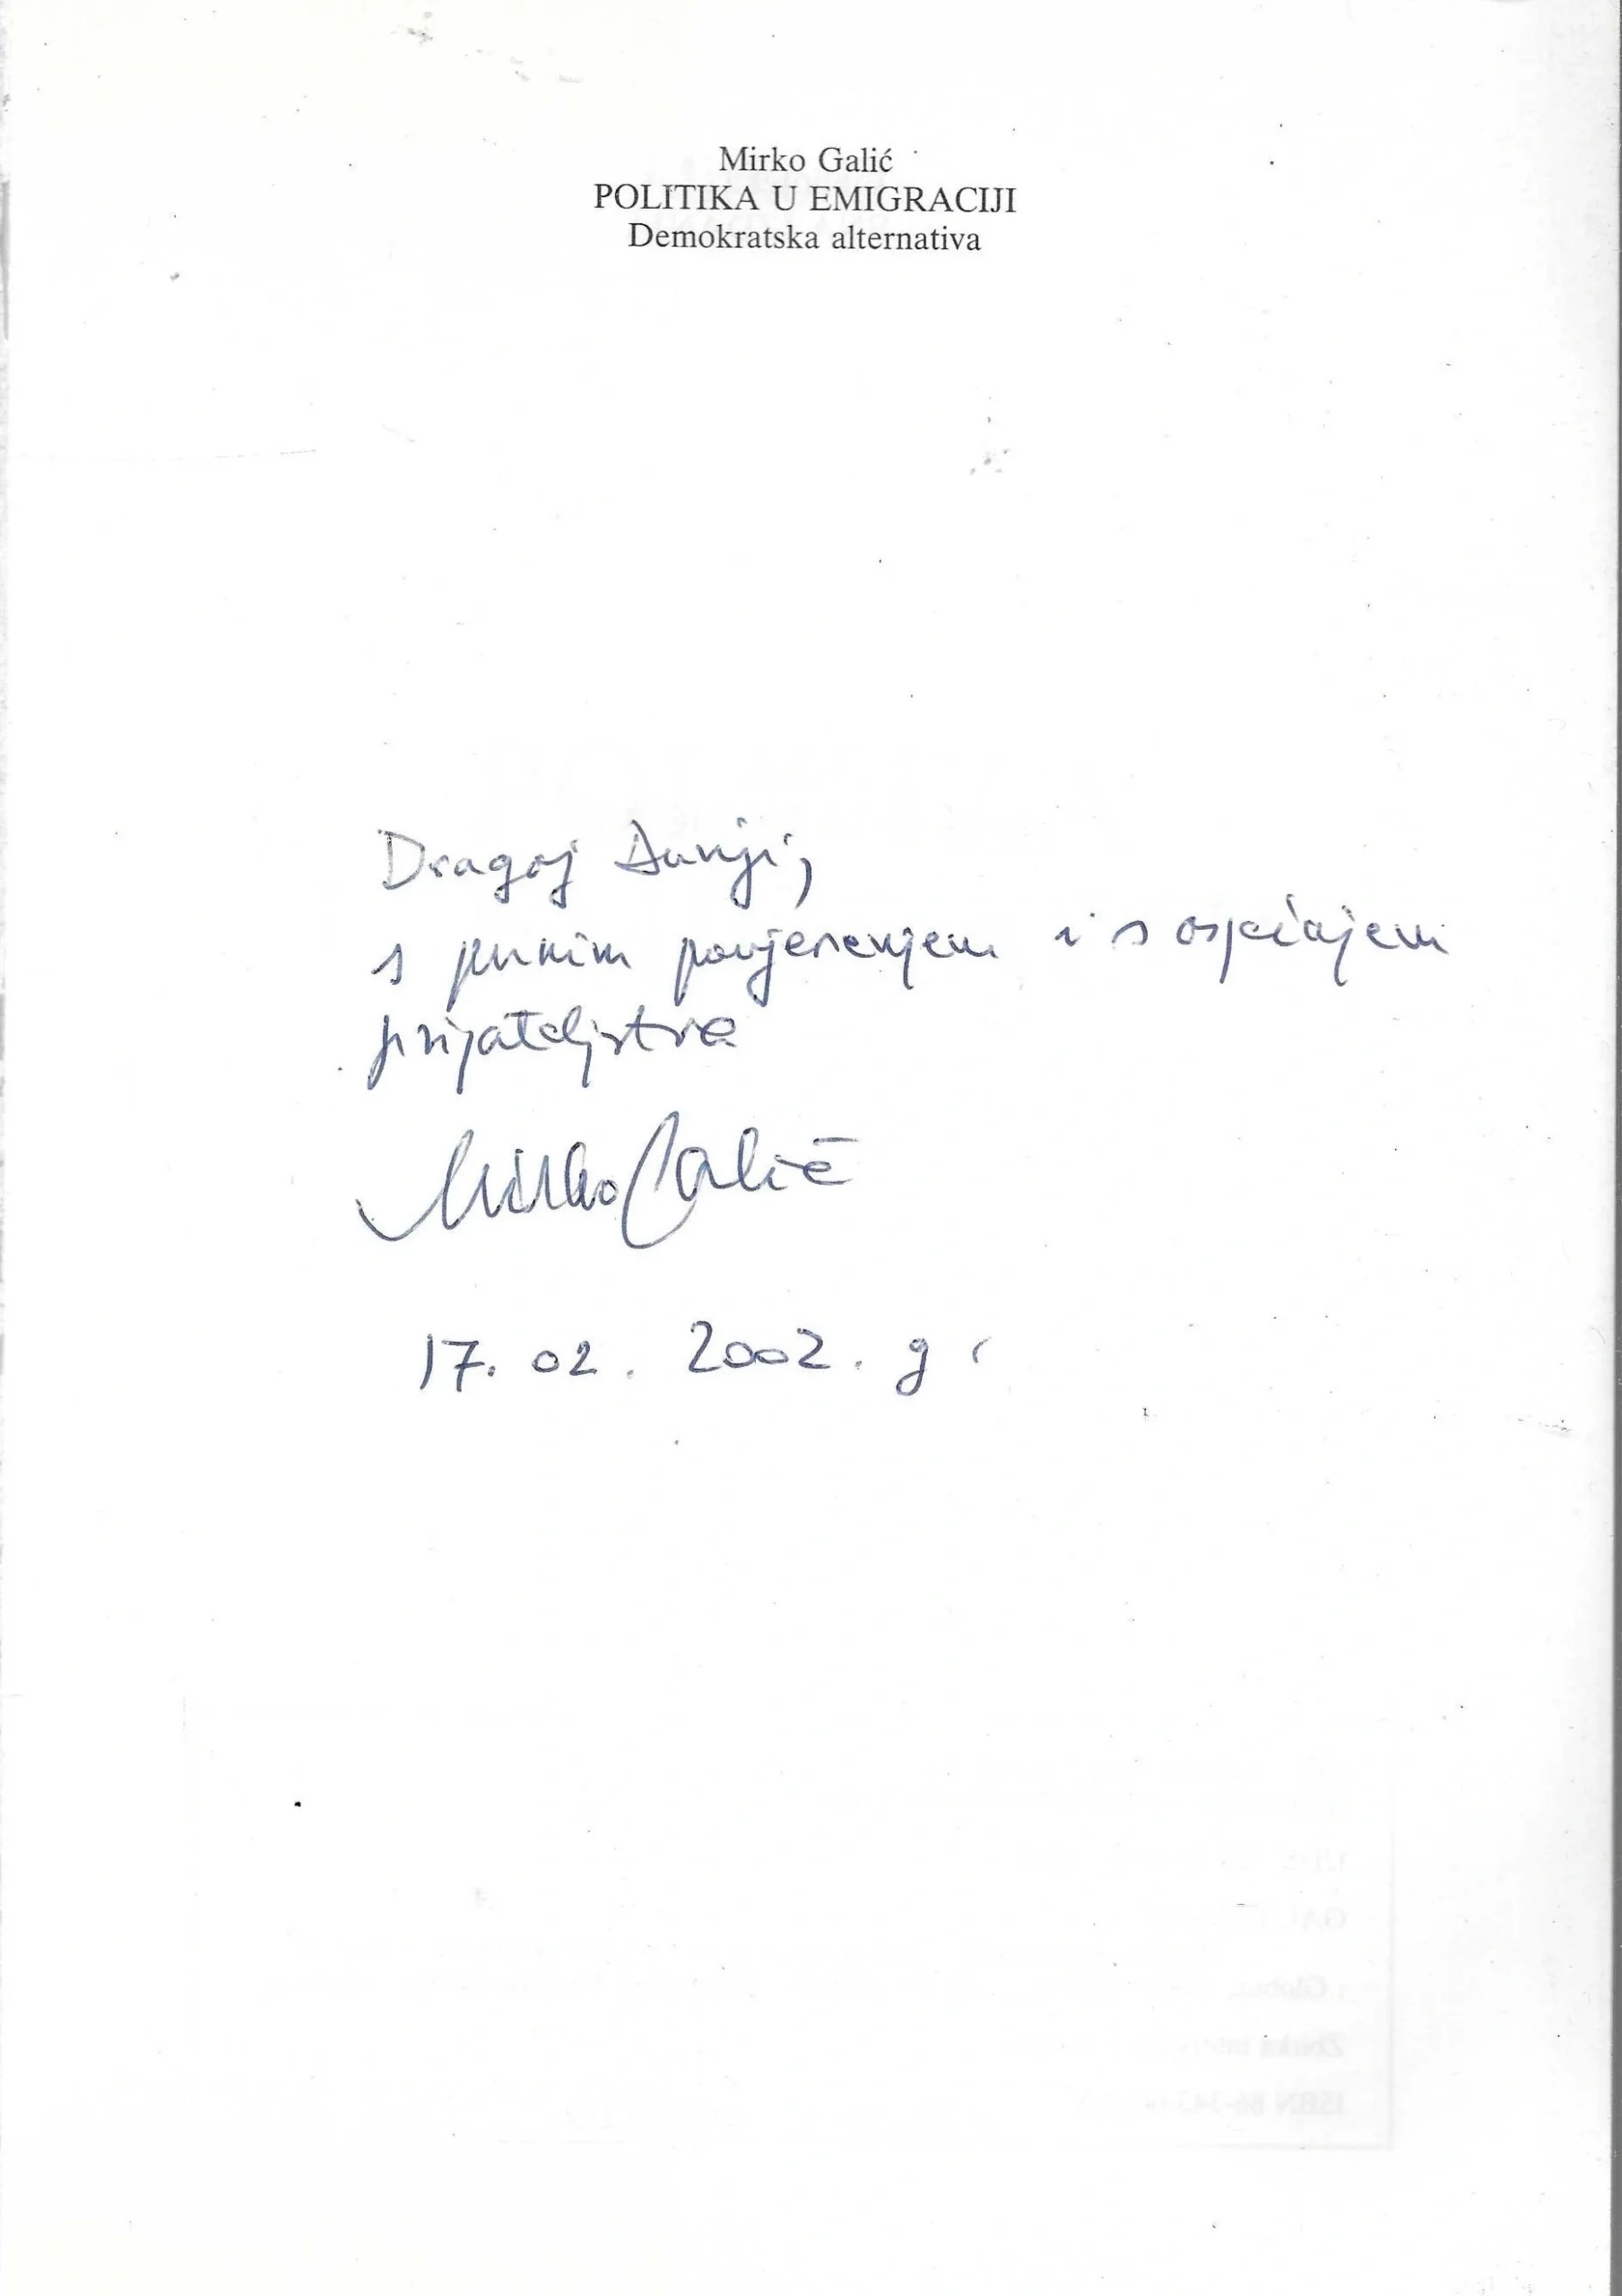 Mirko Galić
POLITIKA U EMIGRACIJI
Demokratska alternativa
Dragoj
s punim povjerenjem i s osjećajem
prijateljstva
Mirko Galić
17. 02. 2002. g.
ISBN 86-343-